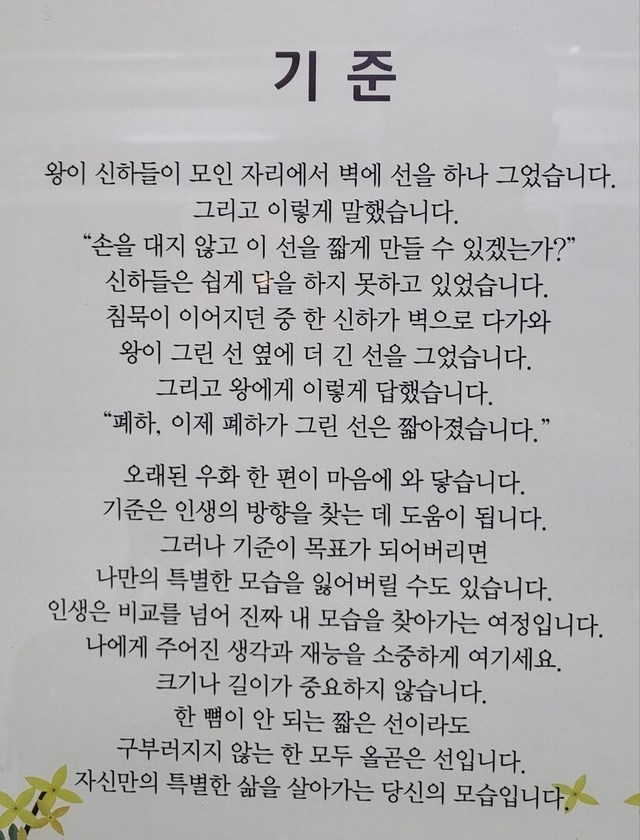 기 준
왕이 신하들이 모인 자리에서 벽에 선을 하나 그었습니다.
그리고 이렇게 말했습니다.
“손을 대지 않고 이 선을 짧게 만들 수 있겠는가?”
신하들은 쉽게 답을 하지 못하고 있었습니다.
침묵이 이어지던 중 한 신하가 벽으로 다가와
왕이 그린 선 옆에 더 긴 선을 그었습니다.
그리고 왕에게 이렇게 답했습니다.
“폐하, 이제 폐하가 그린 선은 짧아졌습니다.”
오래된 우화 한 편이 마음에 와 닿습니다.
기준은 인생의 방향을 찾는 데 도움이 됩니다.
그러나 기준이 목표가 되어버리면
나만의 특별한 모습을 잃어버릴 수도 있습니다.
인생은 비교를 넘어 진짜 내 모습을 찾아가는 여정입니다.
나에게 주어진 생각과 재능을 소중하게 여기세요.
크기나 길이가 중요하지 않습니다.
한 뼘이 안 되는 짧은 선이라도
구부러지지 않는 한 모두 올곧은 선입니다.
자신만의 특별한 삶을 살아가는 당신의 모습입니다.